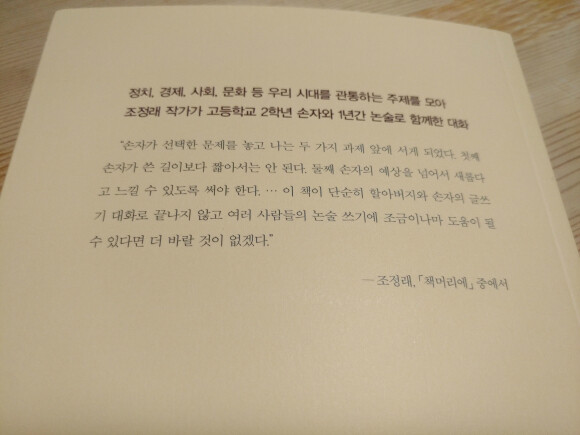 정치, 경제, 사회, 문화 등 우리 시대를 관통하는 주제를 모아
조정래 작가가 고등학교 2학년 손자와 1년간 논술로 함께한 대화
“손자가 선택한 문제를 놓고 나는 두 가지 과제 앞에 서게 되었다. 첫째
손자가 쓴 길이보다 짧아서는 안 된다. 둘째 손자의 예상을 넘어서 새롭다
고 느낄 수 있도록 써야 한다. … 이 책이 단순히 할아버지와 손자의 글쓰
기 대화로 끝나지 않고 여러 사람들의 논술 쓰기에 조금이나마 도움이 될
수 있다면 더 바랄 것이 없겠다.”
— 조정래, 「책머리에」 중에서